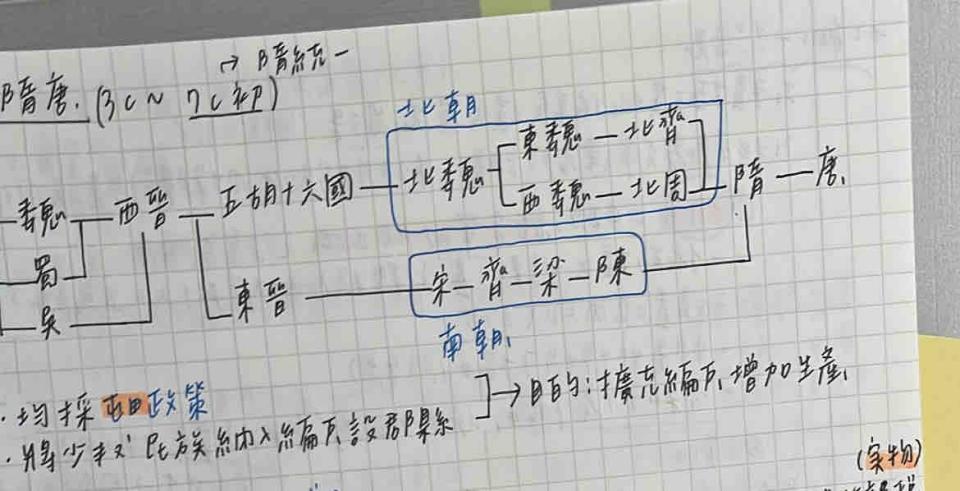 → 隋統一
隋唐. (3c ~ 7c初)
北朝
東魏 — 北齊
魏 — 西晉 — 五胡十六國 — 北魏 — 隋 — 唐
西魏 — 北周
蜀
吳 東晉 — 宋 — 齊 — 梁 — 陳
南朝
→ 目的: 擴充編戶、增加生產
· 均採屯田政策
· 將少數民族納入編戶、設郡縣系
(實物)